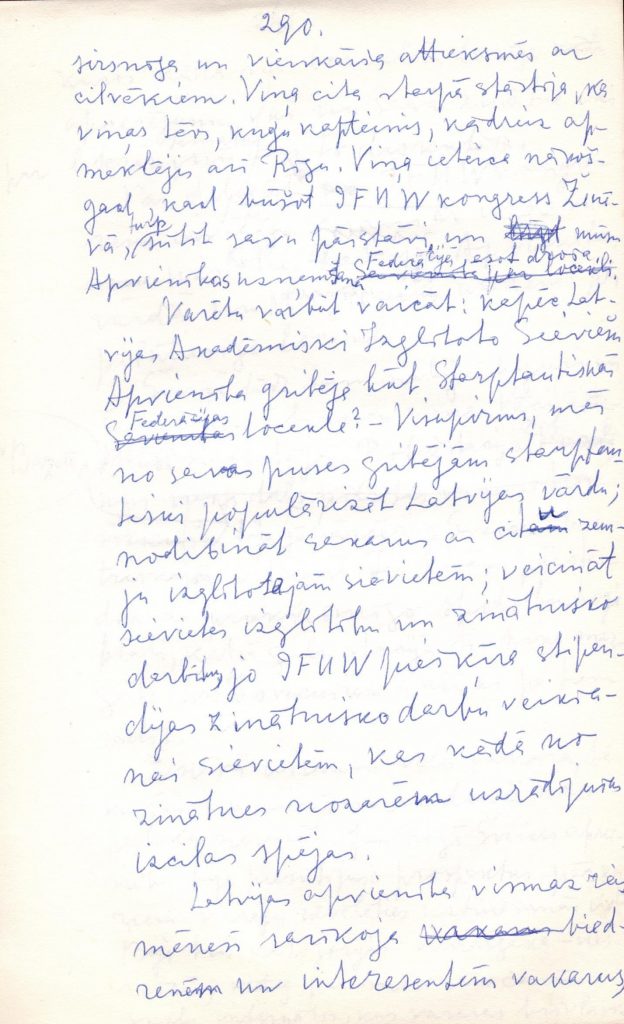 290.
sirsnīga un vienkārša attieksmēs ar
cilvēkiem. Viņa cita starpā stāstīja, ka
viņas tēvs, kuģu kapteinis, kādreiz ap-
meklējis arī Rīgu. Viņa ieteica nākoš-
gad, kad būšot IFUW kongress Ženē-
vā, turp sūtīt savu pārstāvi, un mūsu
Apvienības uzņemšana Federācijā esot droša.
Varētu varbūt vaicāt: kāpēc Lat-
vijas Akadēmiski Izglītoto Sieviešu
Apvienība gribēja kūt Starptautiskās
Federācijas locekle? – Vispirms, mēs
no savas puses gribējām starptau-
tiski popularizēt Latvijas vārdu;
nodibināt sakarus ar citu zem-
ju izglītotajām sievietēm; veicināt
sievietes izglītību un zinātnisko
darbību, jo IFUW piešķīra stipen-
dijas zinātnisko darbu veikša-
nai sievietēm, kas kādā no
zinātnes nozarēm uzrādījušas
izcilas spējas.
Latvijas apvienība vismaz reiz
mēnesī sarīkoja bied-
renēm un interesentēm vakarus,